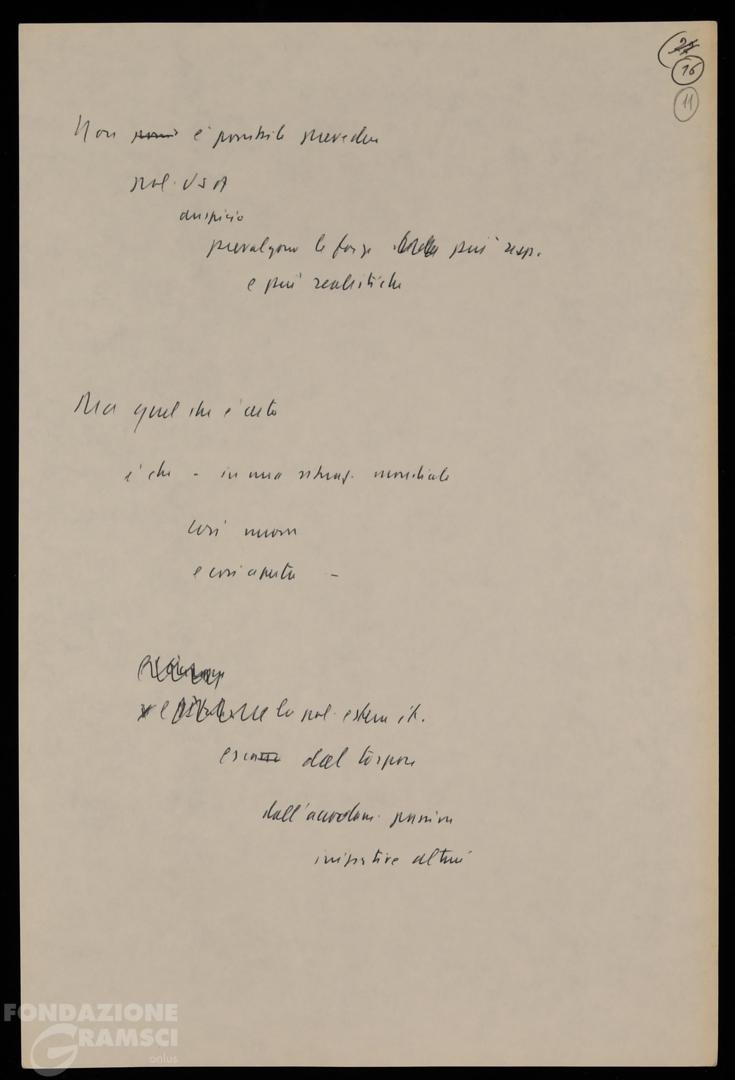 16
11
Non è possibile prevedere
pol. USA
auspicio
prevalgano le forze più resp.
e più realistiche
Ma quel che è certo
è che - in una situaz. mondiale
così nuova
e così aperta -
la pol. estera it.
esca dal torpore
dall'accodam. passivo
iniziative altrui
FONDAZIONE
GRAMSCI
onlus